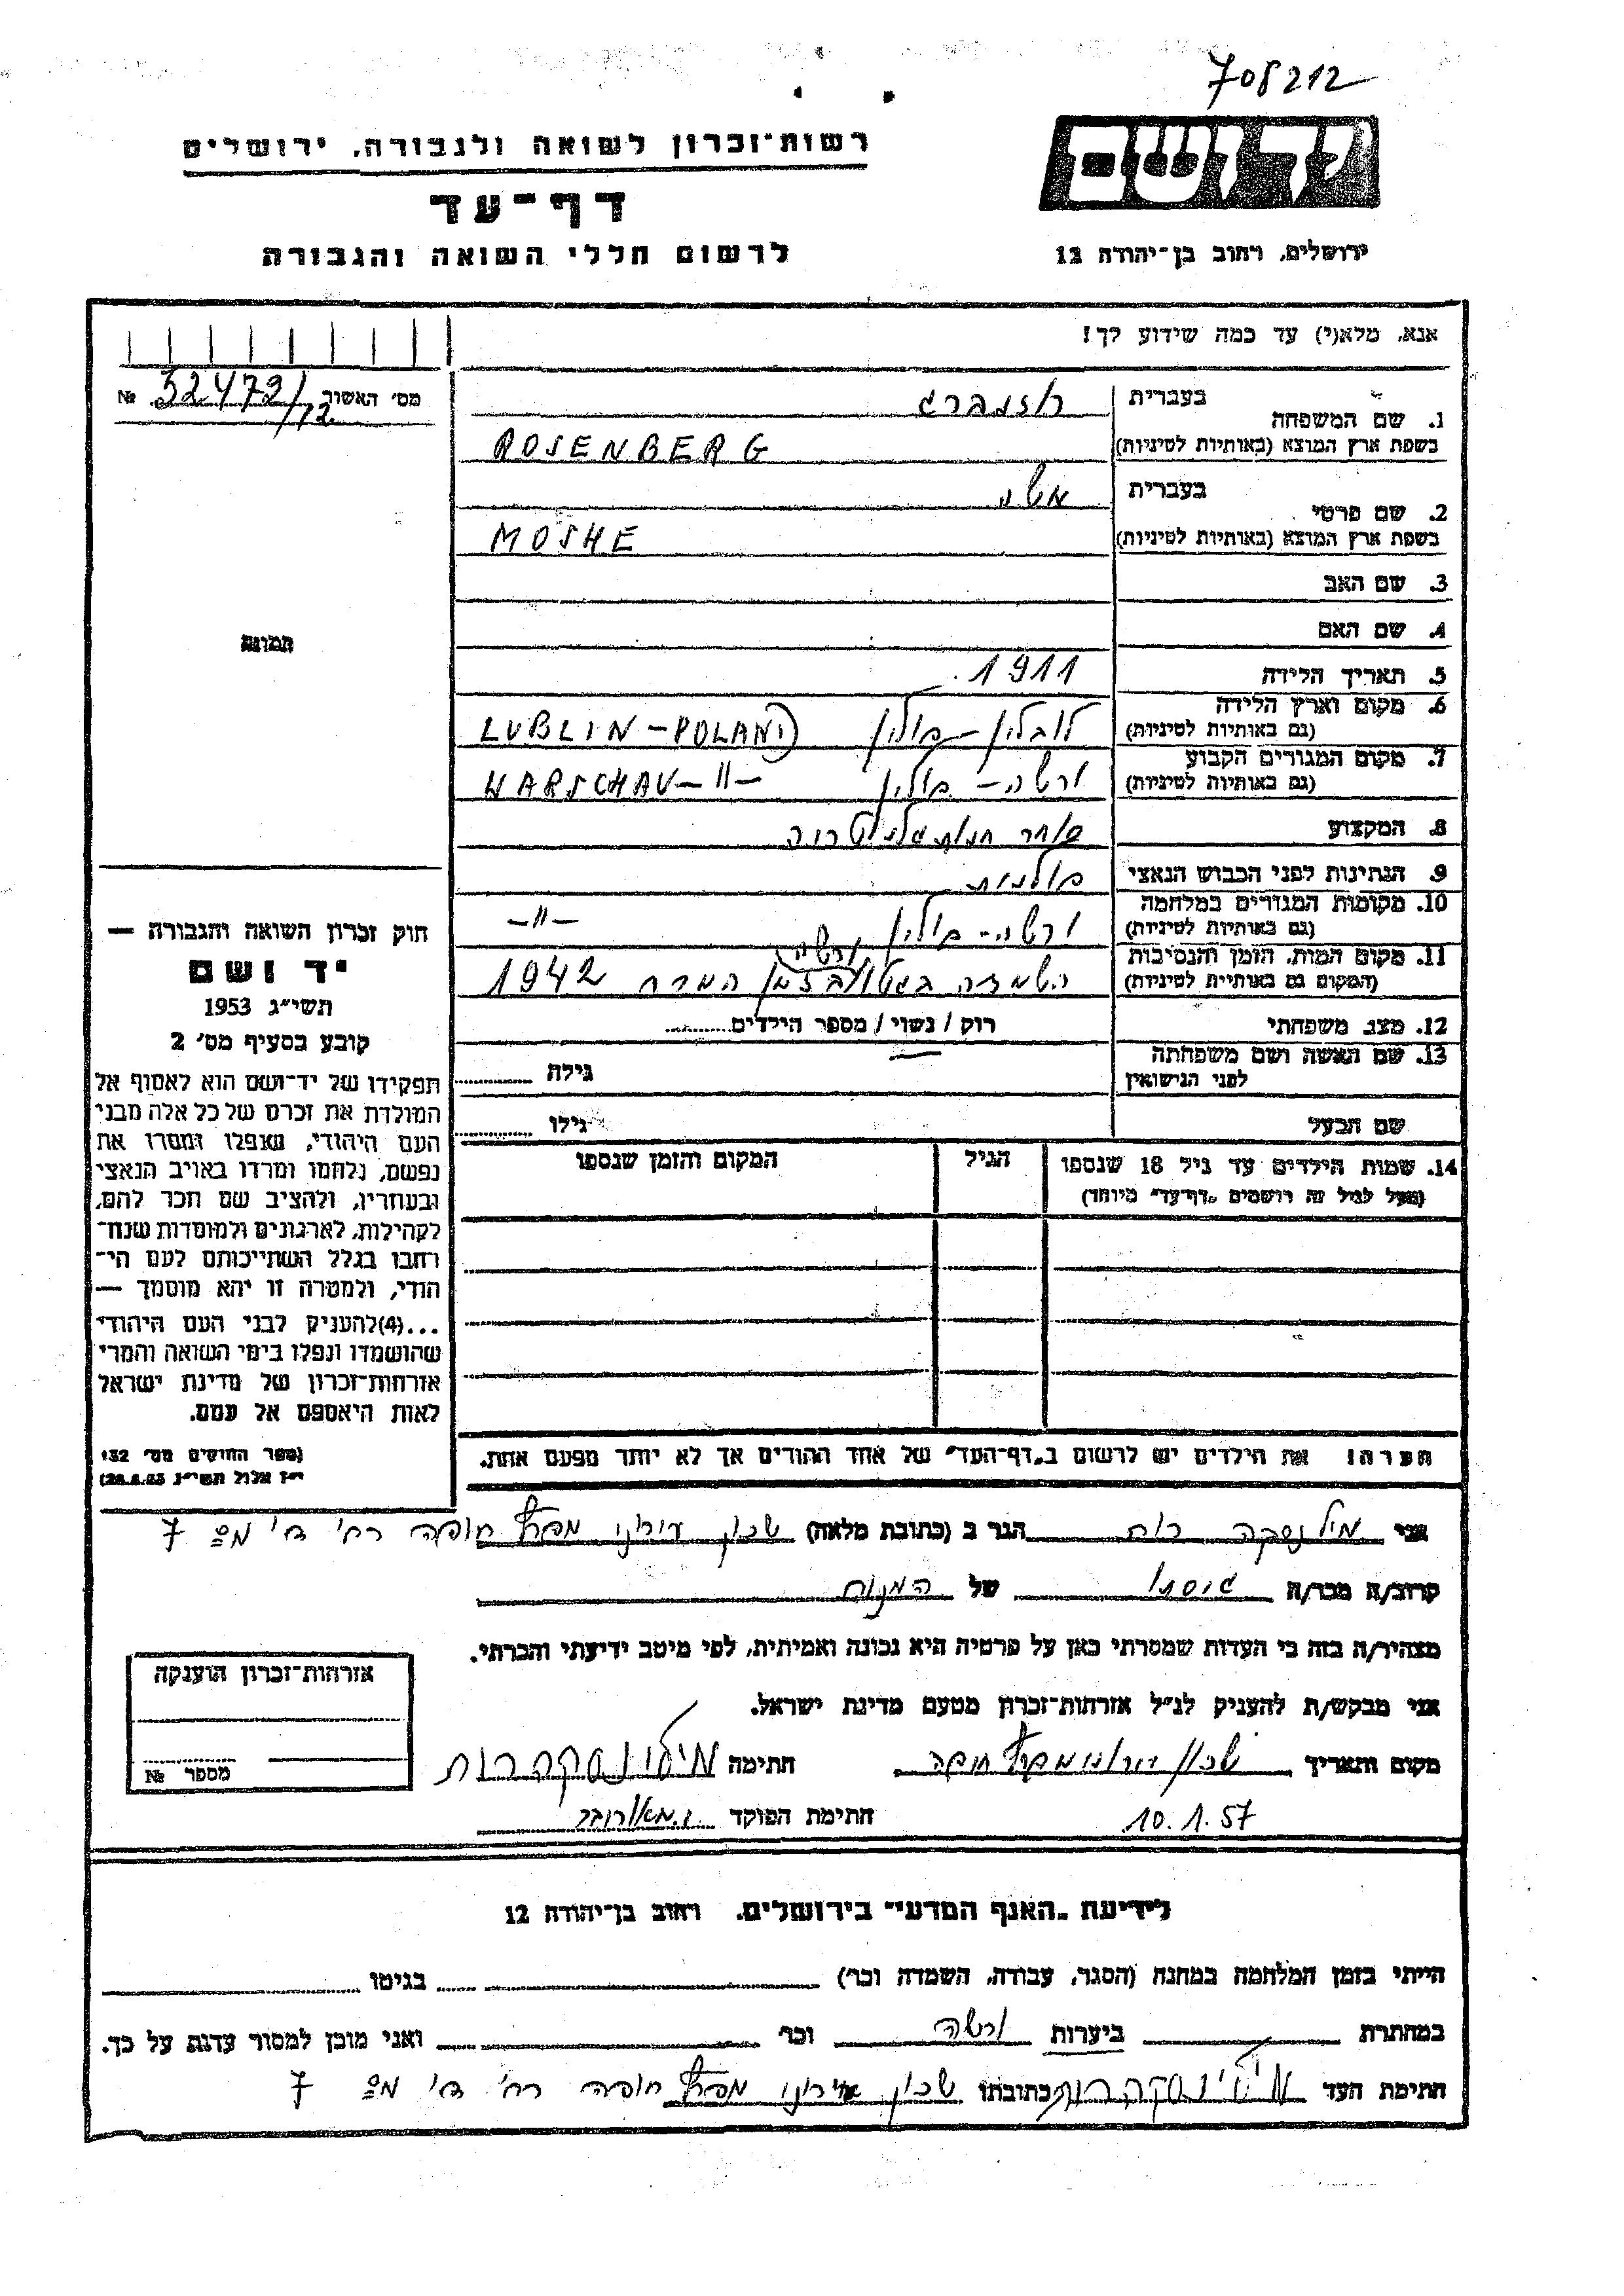 708212
יד ושם
רשות־זכרון לשואה ולגבורה, ירושלים
דף־עד
לרשום חללי השואה והגבורה
ירושלים, רחוב בן־יהודה 12
אנא, מלא(י) עד כמה שידוע לך!
מס׳ האשור 32473/12 №
1. שם המשפחה
בעברית רוזנברג
בשפת ארץ המוצא (באותיות לטיניות) ROSENBERG
2. שם פרטי
בעברית משה
בשפת ארץ המוצא (באותיות לטיניות) MOSHE
3. שם האב
4. שם האם
תמונה
5. תאריך הלידה 1911
6. מקום וארץ הלידה (גם באותיות לטיניות) לובלין – פולין LUBLIN – POLAND
7. מקום המגורים הקבוע (גם באותיות לטיניות) ורשה – פולין WARSCHAU –"–
8. המקצוע סוחר חנות גלנטריה
9. הנתינות לפני הכבוש הנאצי פולנית
10. מקומות המגורים במלחמה (גם באותיות לטיניות) ורשה – פולין –"–
11. מקום המות, הזמן והנסיבות (המקום גם באותיית לטיניות) השמדה בגטו ורשה בזמן המרד 1942
12. מצב משפחתי רוק / נשוי / מספר הילדים
13. שם האשה ושם משפחתה לפני הנישואין גילה
שם הבעל גילו
14. שמות הילדים עד גיל 18 שנספו הגיל המקום והזמן שנספו
(מעל לגיל זה רושמים „דף־עד" מיוחד)
חוק זכרון השואה והגבורה —
יד ושם
תשי״ג 1953
קובע בסעיף מס׳ 2
תפקידו של יד־ושם הוא לאסוף אל
המולדת את זכרם של כל אלה מבני
העם היהודי, שנפלו ומסרו את
נפשם, נלחמו ומרדו באויב הנאצי
ובעוזריו, ולהציב שם וזכר להם,
לקהילות, לארגונים ולמוסדות שנח־
רחבו בגלל השתייכותם לעם הי־
הודי, ולמטרה זו יהא מוסמך —
...(4) להעניק לבני העם היהודי
שהושמדו ונפלו בימי השואה והמרי
אזרחות־זכרון של מדינת ישראל
לאות היאספם אל עמם.
(ספר החוקים מס׳ 132
י״ז אלול תשי״ג 28.8.53)
הערה: את הילדים יש לרשום ב„דף־העד" של אחד ההורים אך לא יותר מפעם אחת.
אני מילנסקה רות הגר ב (כתובת מלאה) שכון עירוני מפרץ חיפה רח׳ ד׳ מס 7
קרוב/ה מכר/ה גיסתו של המנוח
מצהיר/ה בזה כי העדות שמסרתי כאן על פרטיה היא נכונה ואמיתית, לפי מיטב ידיעתי והכרתי.
אני מבקש/ת להעניק לנ״ל אזרחות־זכרון מטעם מדינת ישראל.
מקום ותאריך שכון עירוני מפרץ חיפה חתימה מילנסקה רות
10.1.57 חתימת הפוקד
אזרחות־זכרון הוענקה
מספר №
לידיעת „האגף המדעי" בירושלים, רחוב בן־יהודה 12
הייתי בזמן המלחמה במחנה (הסגר, עבודה, השמדה וכו׳) בגיטו
במחתרת ביערות ורשה וכו׳ ואני מוכן למסור עדות על כך.
חתימת העד מילנסקה רות כתובתו שכון עירוני מפרץ חיפה רח׳ ד׳ מס 7